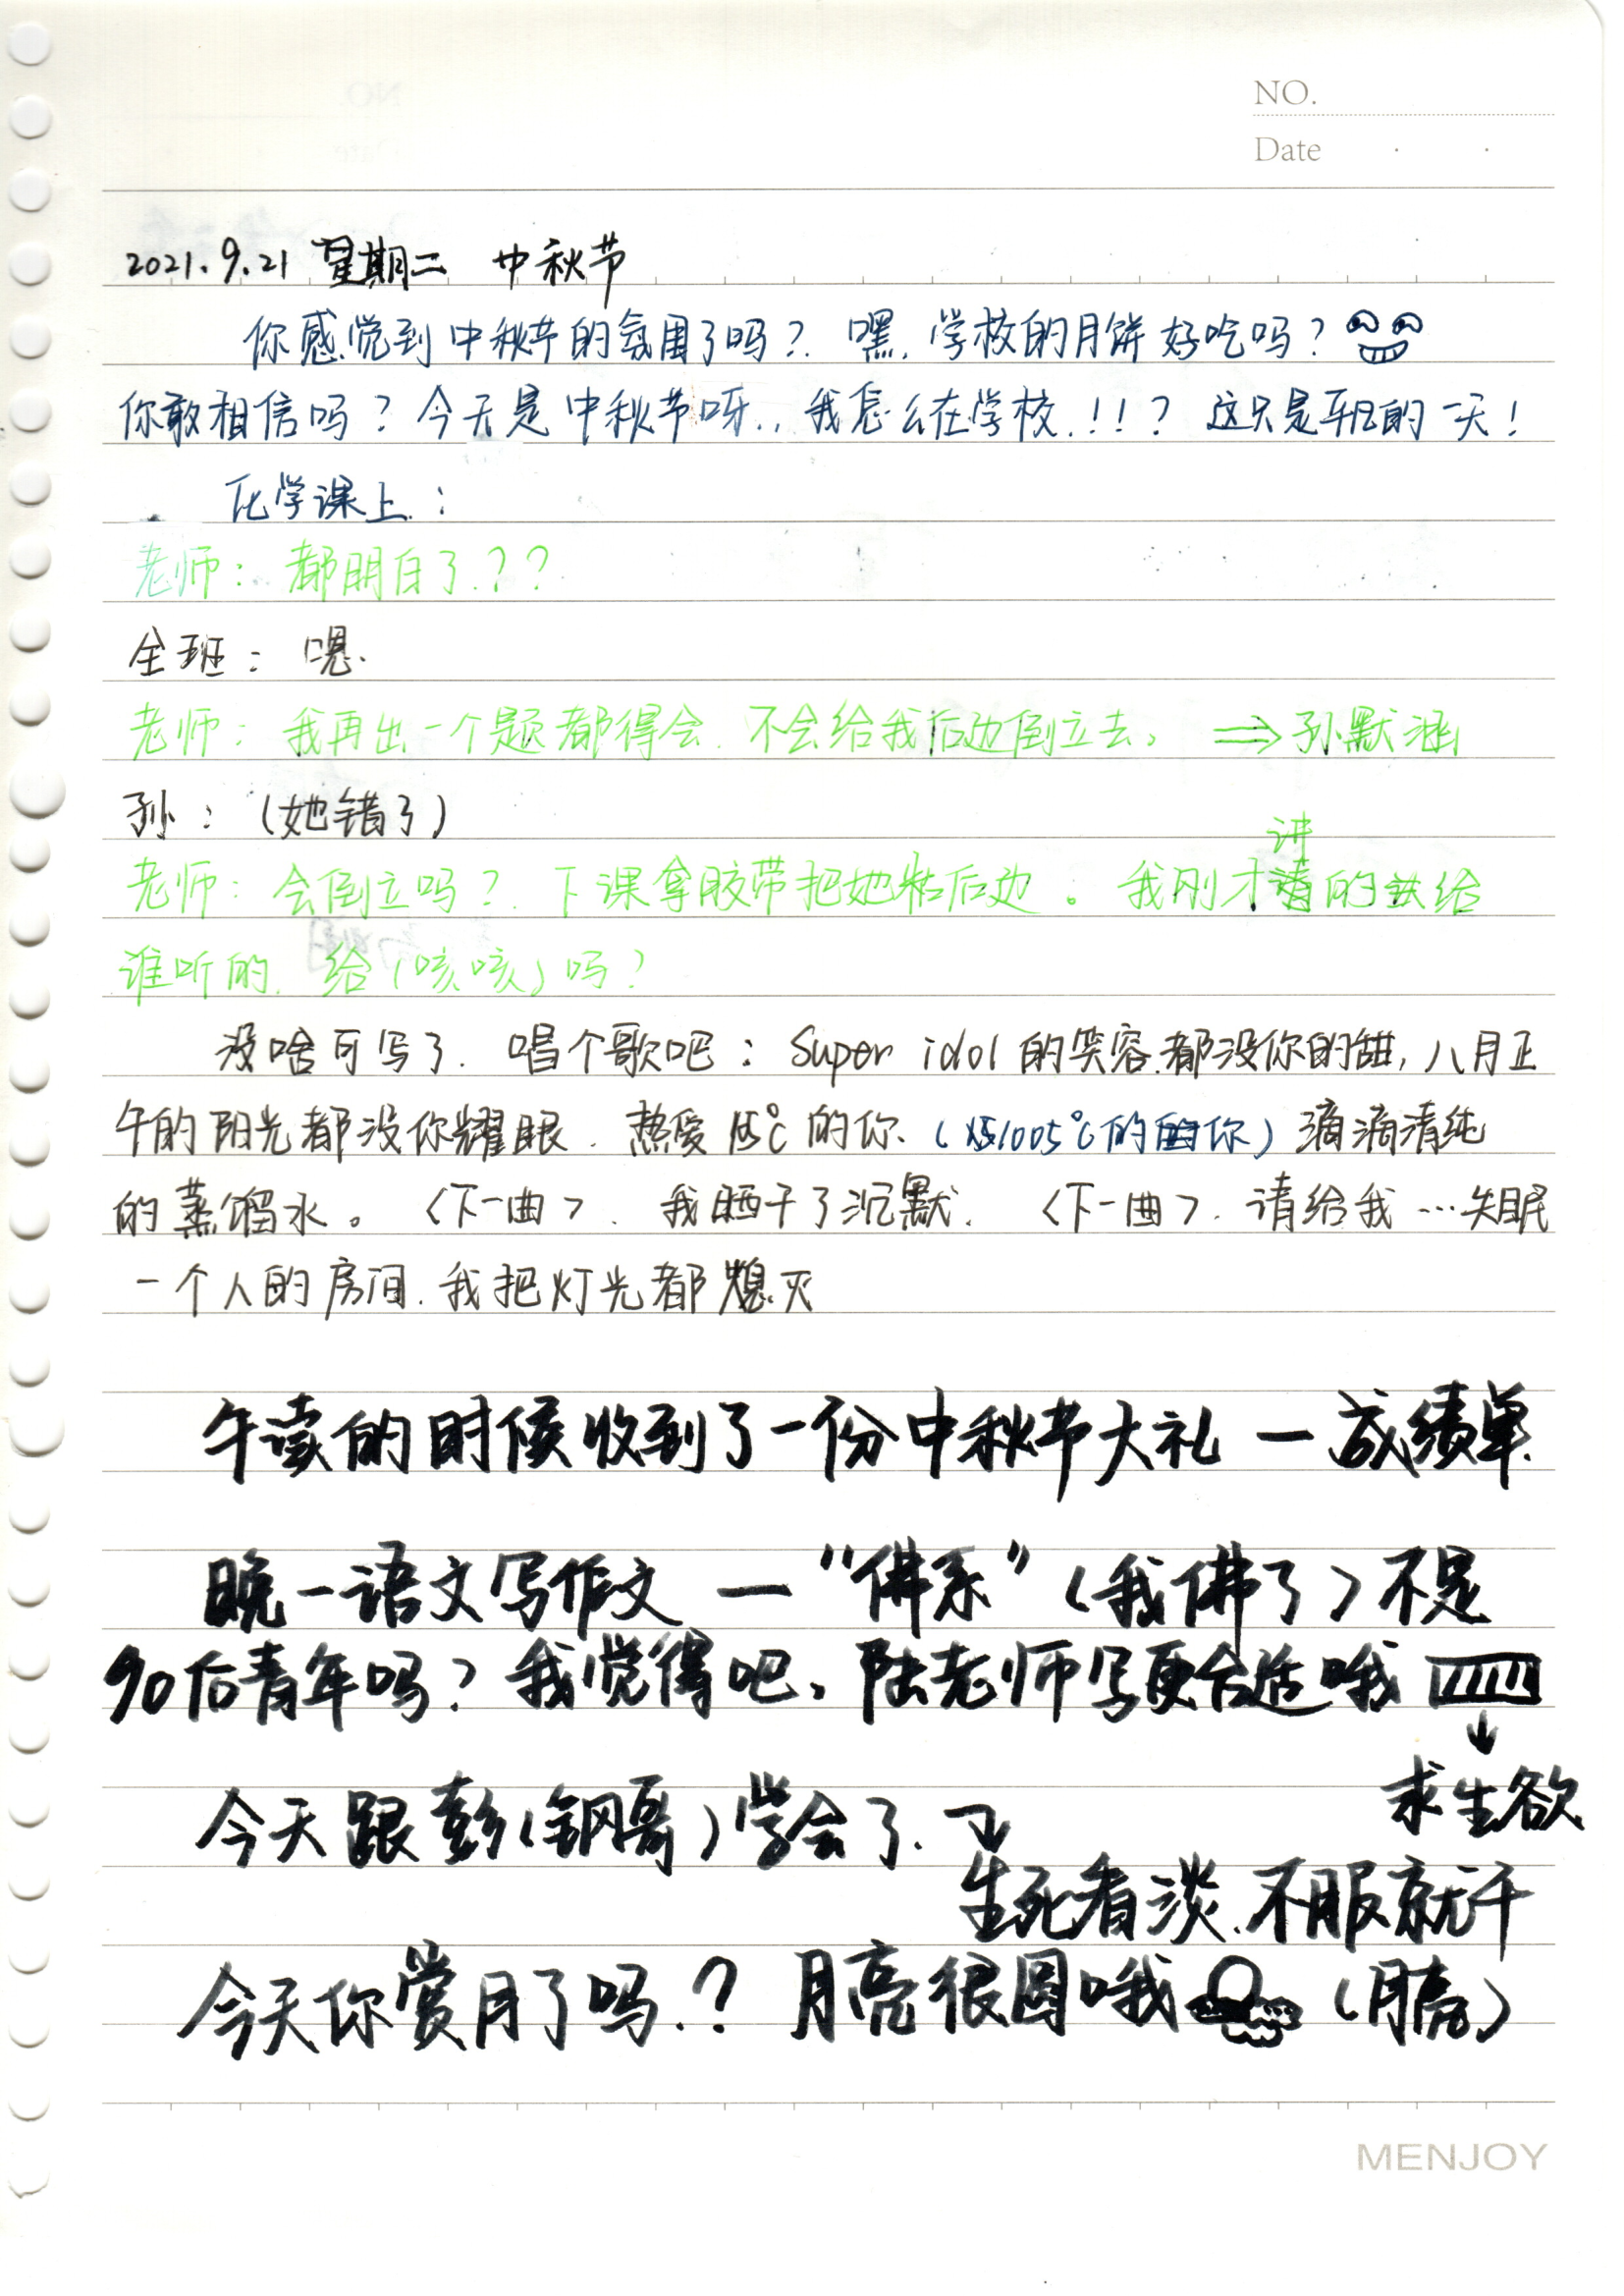 NO.
Date
2021.9.21 星期二 中秋节
你感觉到中秋节的氛围了吗？嘿，学校的月饼好吃吗？
你敢相信吗？今天是中秋节呀，我怎么在学校！！！？这只是平凡的一天！
化学课上：
老师：都明白了？？
全班：嗯.
老师：我再出一个题都得会.不会给我后边倒立去。 ⇒孙默涵
孙：（她错了）
讲
老师：会倒立吗？下课拿胶带把她粘后边。我刚才的给
谁听的.给（咳咳）吗？
没啥可写了.唱个歌吧：Super idol的笑容都没你的甜，八月正
午的阳光都没你耀眼.热爱105℃的你、（炫1005℃的你）滴滴清纯
的蒸馏水。〈下一曲〉.我晒干了沉默.〈下一曲〉.请给我…失眠
一个人的房间.我把灯光都熄灭
午读的时候收到了一份中秋节大礼—成绩单.
晚一语文写作文—“佛系”（我佛了）不是
90后青年吗？我觉得吧，陆老师写更合适哦
↓
求生欲
今天跟彭（钢哥）学会了.
生死看淡.不服就干
今天你赏月了吗.？月亮很圆哦（月亮）
MENJOY